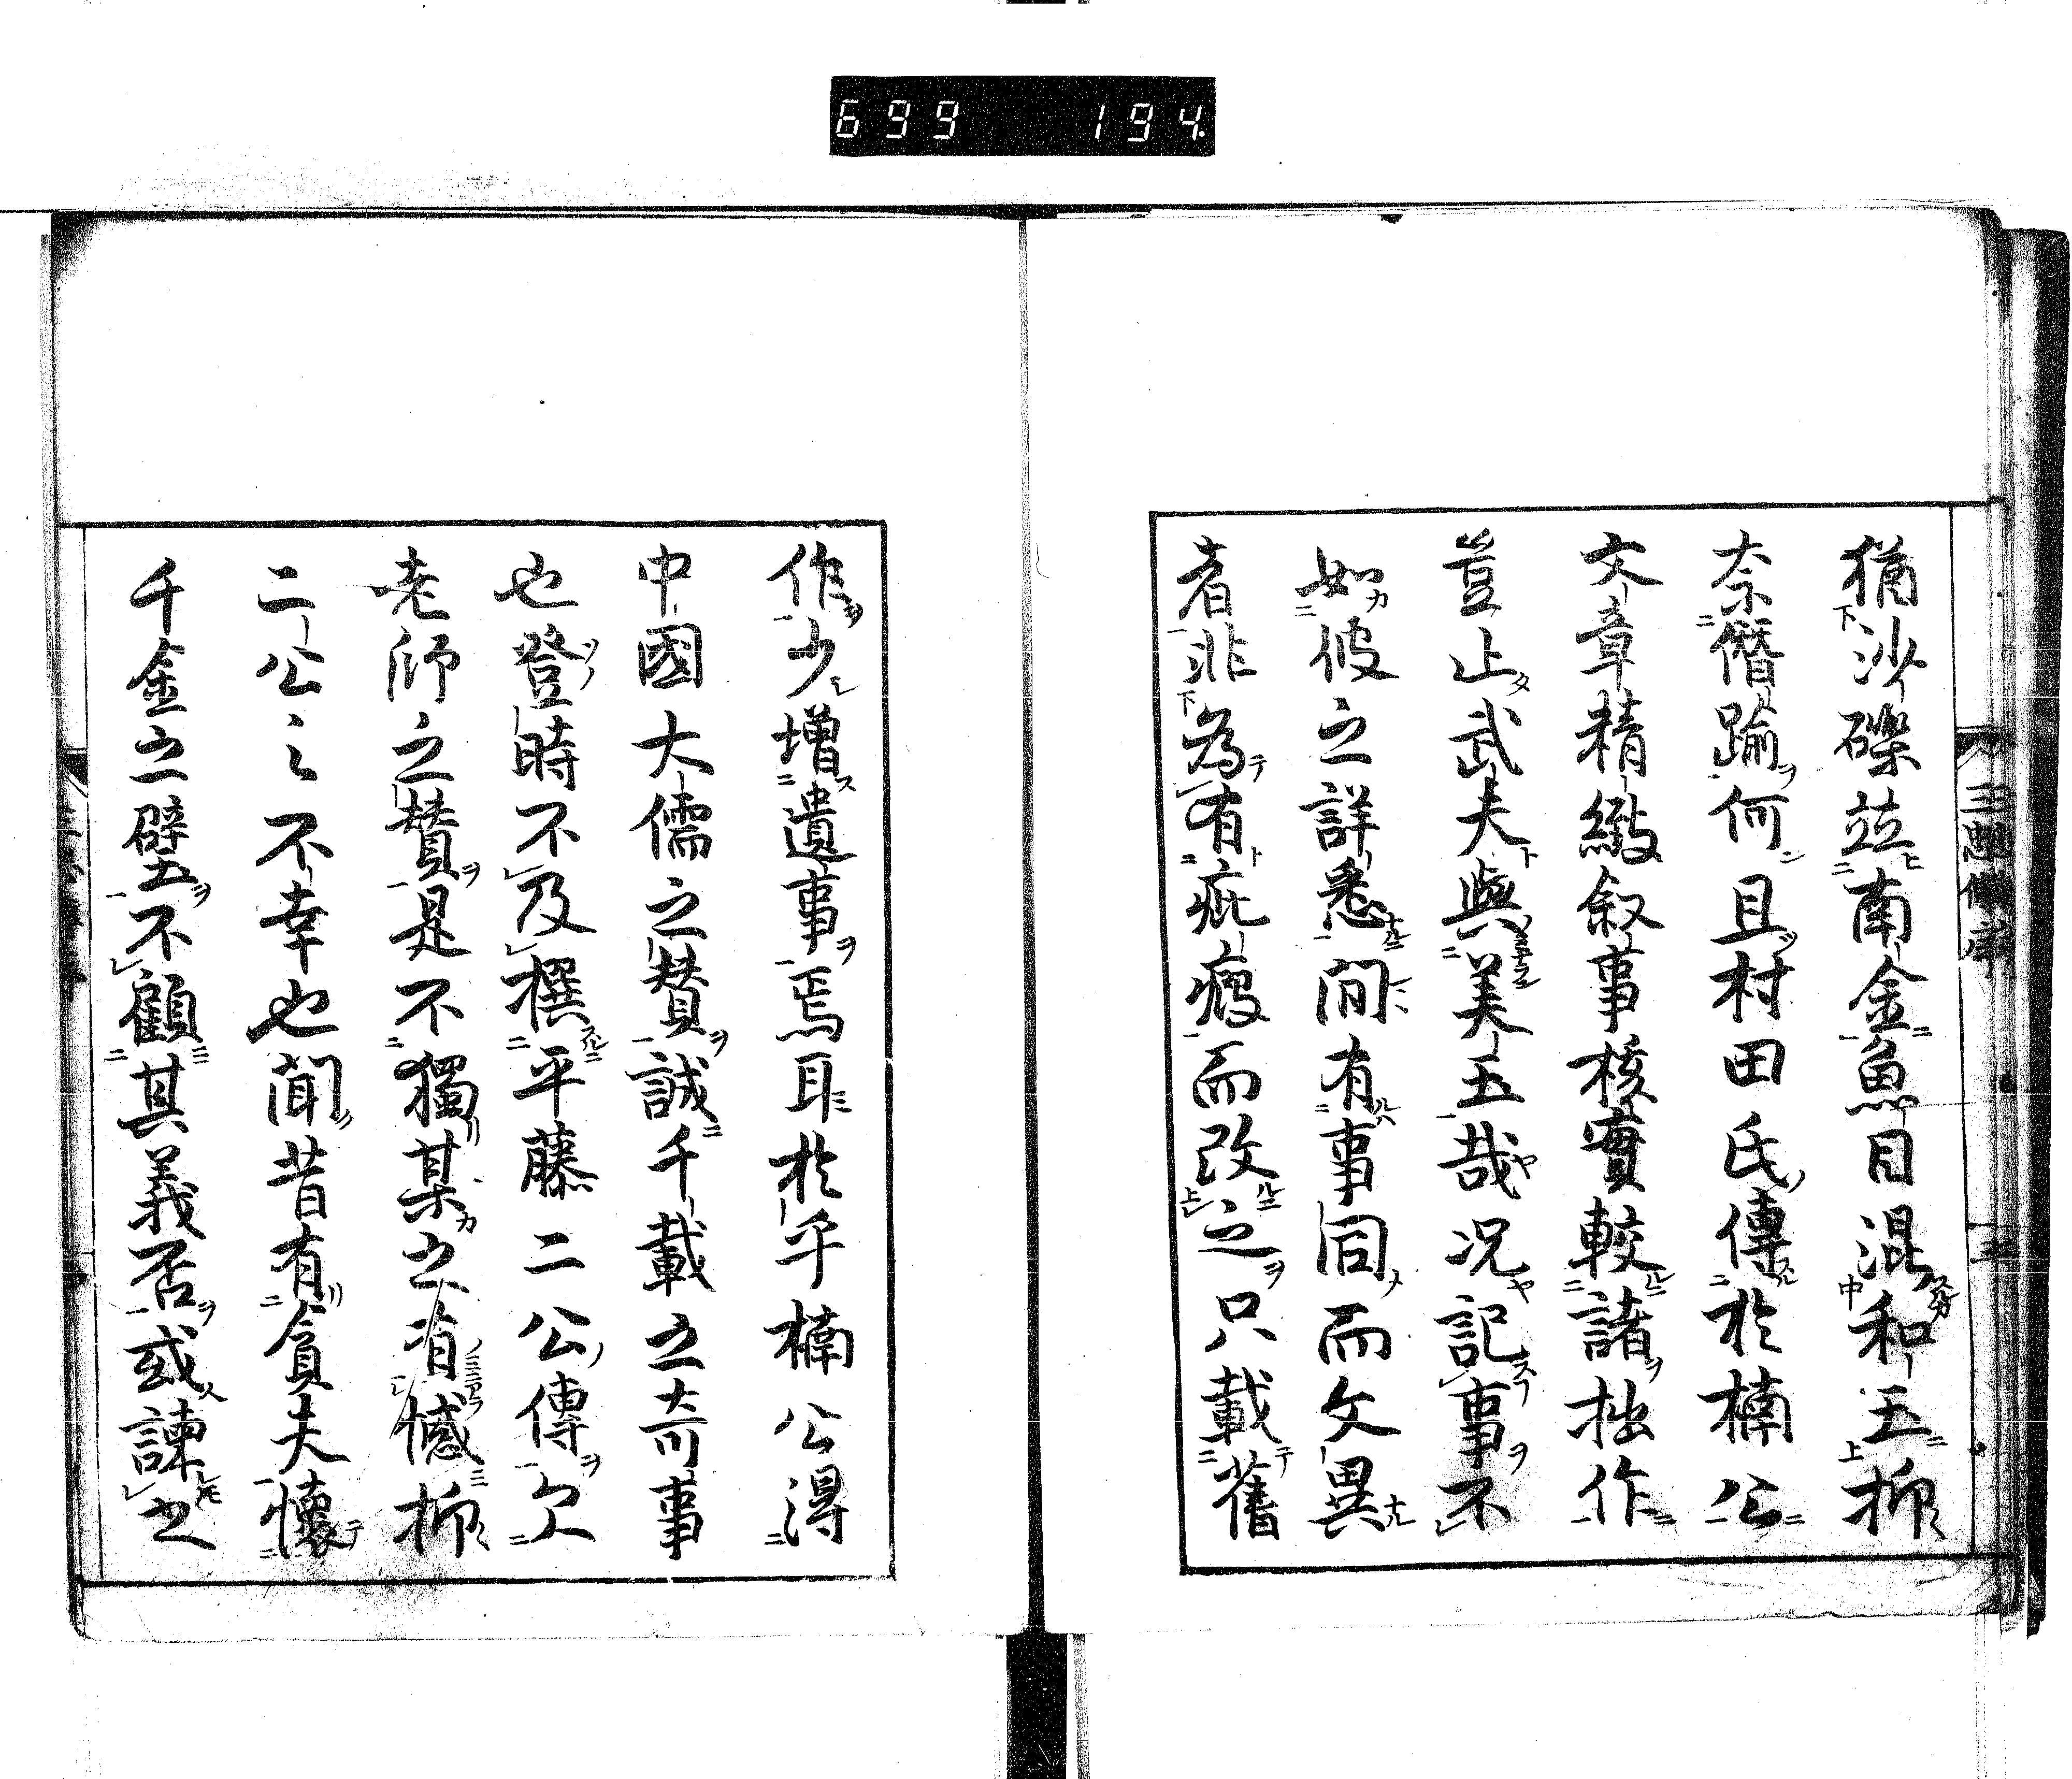 699 194
猶沙礫竝南金魚目混和玉抑
奈僭踰何且村田氏傳於楠公
文章精緻叙事核實較諸拙作
豈止武夫與美玉哉况記事不
如彼之詳悉間有事同而文異
者非為有疵瘢而改之只載舊
作少增遺事焉耳於乎楠公得
中國大儒之賛誠千載之奇事
也登時不及撰平藤二公傳欠
老師之賛是不獨某之有憾抑
二公之不幸也聞昔有貧夫懷
千金之璧不顧其義否或諫之